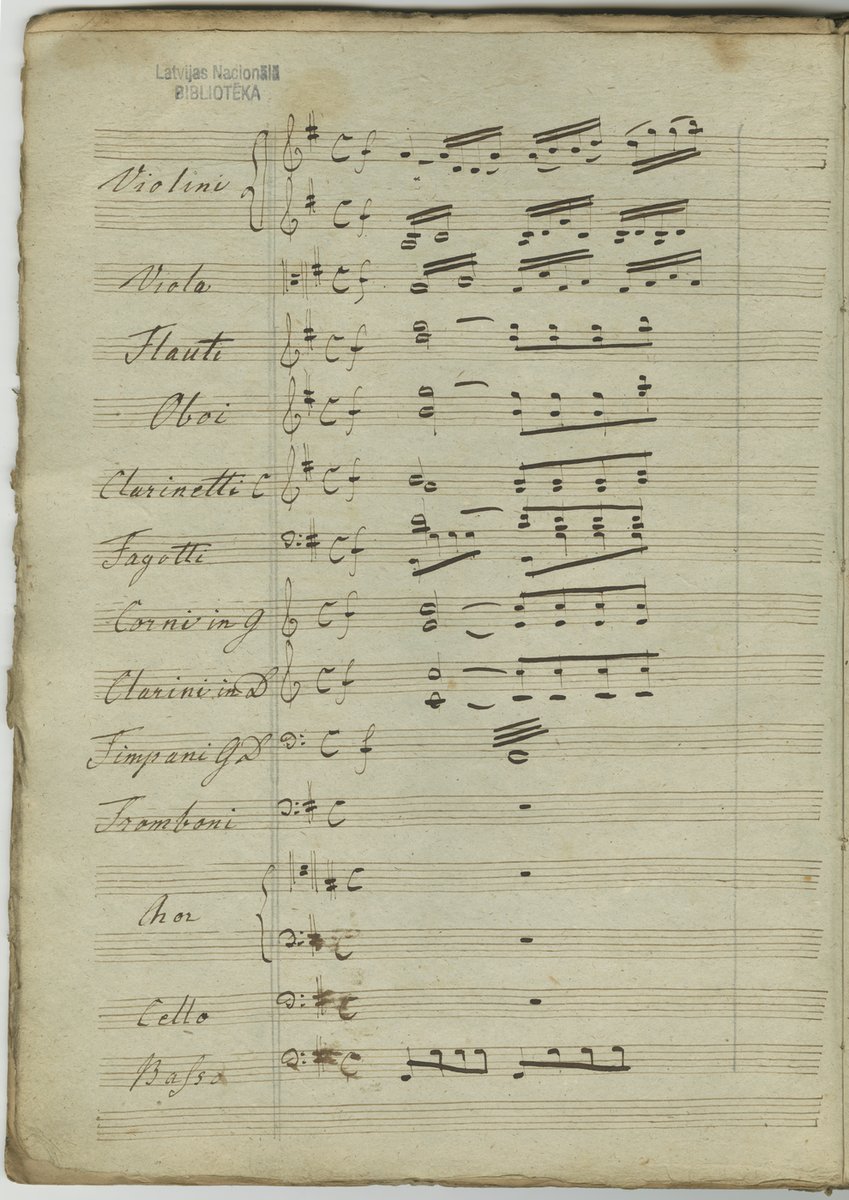 Latvijas Nacionālā
BIBLIOTĒKA
Violini
Viola
Flauti
Oboi
Clarinetti C
Fagotti
Corni in G
Clarini in D
Timpani G D
Tromboni
Chor
Cello
Basso